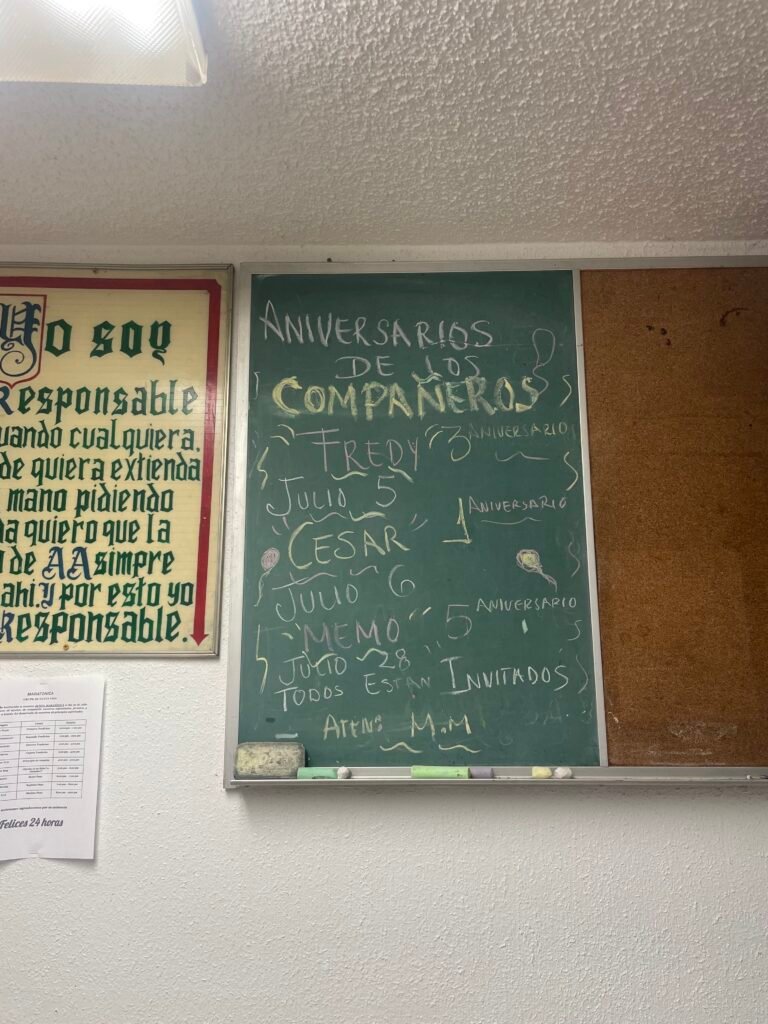 Yo soy
Responsable
uando cualquiera.
de quiera extienda
mano pidiendo
da quiero que la
de AA simpre
ahi. Y por esto yo
Responsable.
ANIVERSARIOS
DE LOS
COMPAÑEROS
"FREDY" 3 ANIVERSARIO
JULIO 5
"CESAR" 1 ANIVERSARIO
JULIO 6
"MEMO" 5 ANIVERSARIO
JULIO 28
TODOS ESTAN INVITADOS
ATENS M.M
MARATONICA
Felices 24 horas